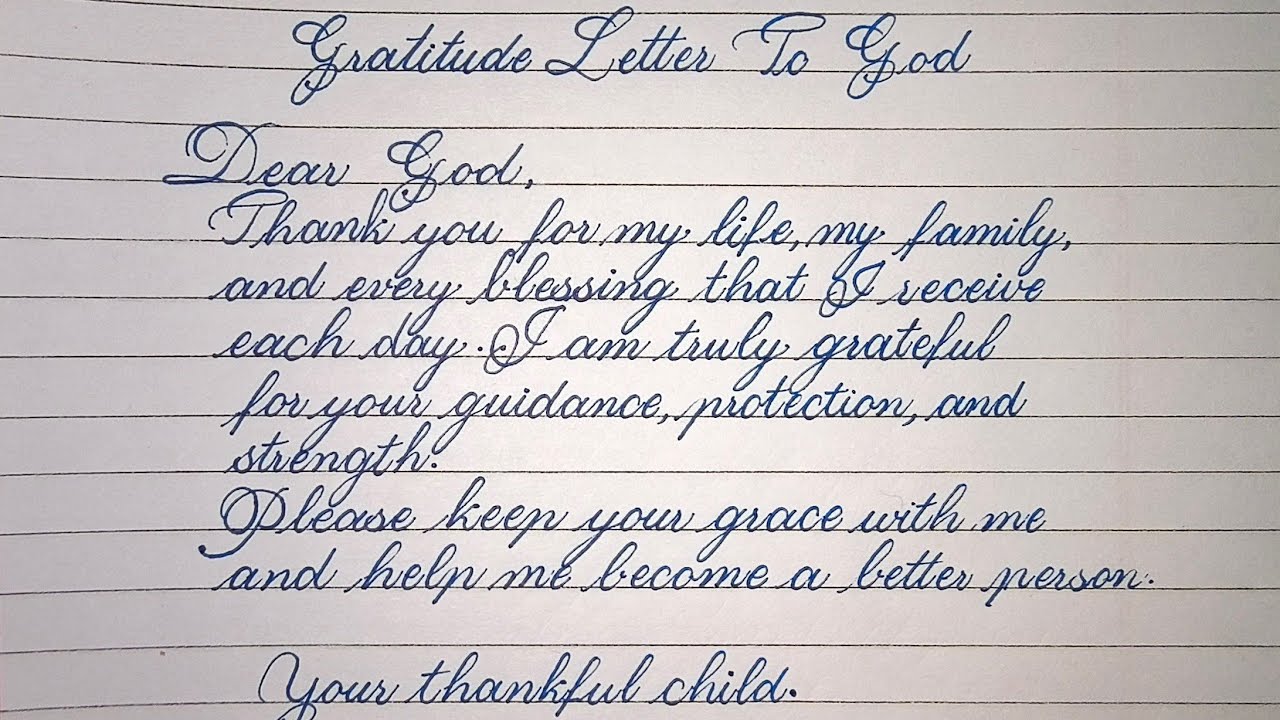 Gratitude Letter To God
Dear God,
Thank you for my life, my family,
and every blessing that I receive
each day. I am truly grateful
for your guidance, protection, and
strength.
Please keep your grace with me
and help me become a better person.
Your thankful child.